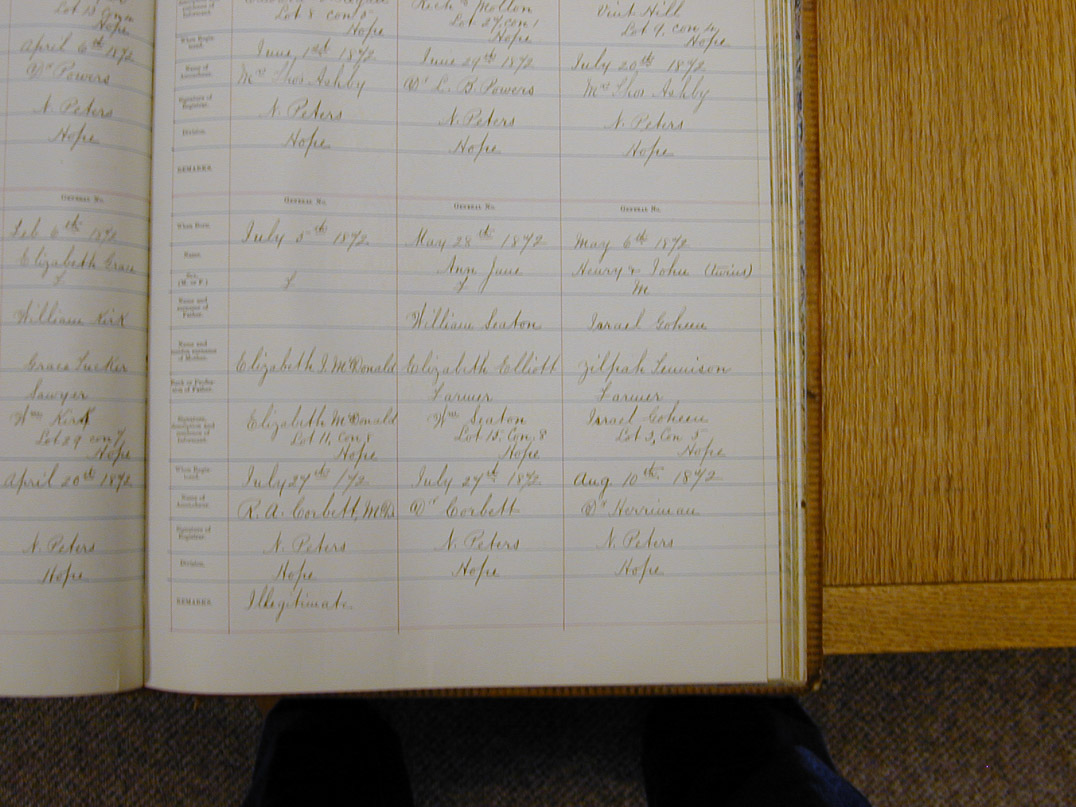 Lot 13
Hope
April 6th 1872
Dr Powers
N. Peters
Hope
GENERAL NO.
Feb 6th 1872
Elizabeth Grace
f
William Kirk
Grace Tucker
Sawyer
Wm Kirk
Lot 29 con 7
Hope
April 20th 1872
N. Peters
Hope
Lot 8 con 5
Hope
Lot 27, con 1
Hope
Vint Hill
Lot 9, con 4
Hope
When Regis-
tered.
June 1st 1872
June 29th 1872
July 20th 1872
Name of
Accoucheur.
Mrs Thos Ashby
Dr L. B. Powers
Mrs Thos Ashby
Signature of
Registrar.
N. Peters
N. Peters
N. Peters
Division.
Hope
Hope
Hope
REMARKS.
GENERAL NO.
GENERAL NO.
GENERAL NO.
When Born.
July 5th 1872
May 28th 1872
May 6th 1872
Name.
Ann Jane
Henry & John (twins)
Sex.
(M. or F.)
f
f
m
Name and
surname of
Father.
William Seaton
Israel Goheen
Name and
maiden surname
of Mother.
Elizabeth J. McDonald
Elizabeth Elliott
Zilpah Tennison
Rank or Profes-
sion of Father.
Farmer
Farmer
Signature,
description and
residence of
Informant.
Elizabeth McDonald
Lot 11, Con 8
Hope
Wm Seaton
Lot 15, Con, 8
Hope
Israel Goheen
Lot 3, Con 5
Hope
When Regis-
tered.
July 27th /72
July 27th 1872
Aug 10th 1872
Name of
Accoucheur.
R. A. Corbett, M.D.
Dr Corbett
Dr Herriman
Signature of
Registrar.
N. Peters
N. Peters
N. Peters
Division.
Hope
Hope
Hope
REMARKS.
Illegitimate